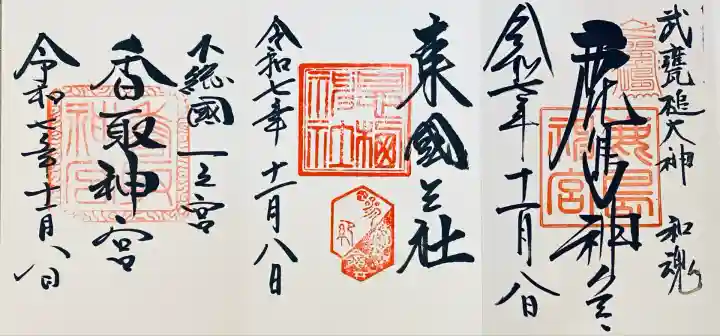 武甕槌大神 和魂
鹿島神宮
令和七年十一月八日
東國三社
息栖神社
令和七年十一月八日
下総國一之宮
香取神宮
香取神宮
令和七年十一月八日
鹿島神宮